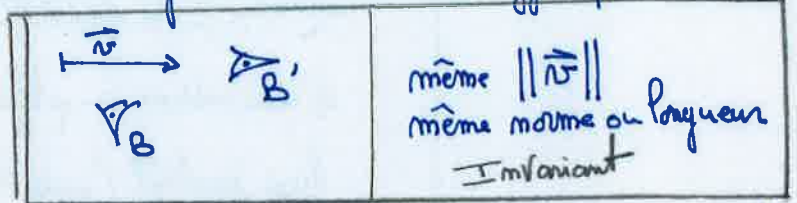 v⃗
B'
B
même ||v⃗||
même norme ou longueur
Invariant